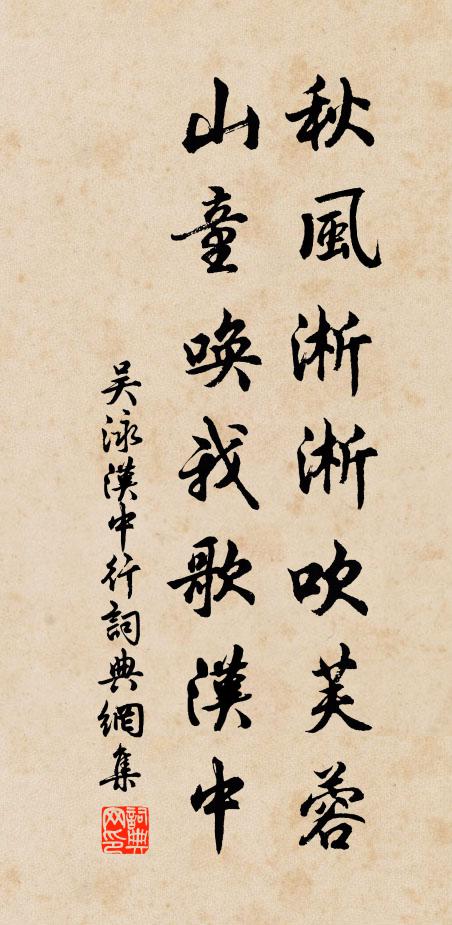 秋風淅淅吹芙蓉
山童喚我歌漢中
吴泳漢中行詞典網集
詞典網印